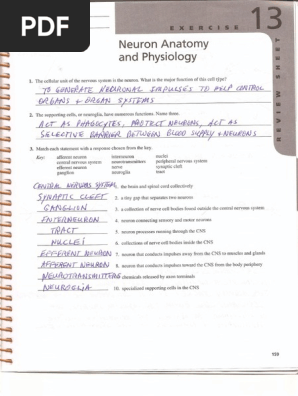 PDF
EXERCISE 13
Neuron Anatomy
and Physiology
REVIEW SHEET
1. The cellular unit of the nervous system is the neuron. What is the major function of this cell type?
TO GENERATE NEURONAL IMPULSES TO HELP CONTROL
ORGANS + ORGAN SYSTEMS
2. The supporting cells, or neuroglia, have numerous functions. Name three.
ACT AS PHAGOCYTES, PROTECT NEURONS, ACT AS
SELECTIVE BARRIER BETWEEN BLOOD SUPPLY + NEURONS
3. Match each statement with a response chosen from the key.
Key: afferent neuron interneuron nuclei
central nervous system neurotransmitters peripheral nervous system
efferent neuron nerve synaptic cleft
ganglion neuroglia tract
CENTRAL NERVOUS SYSTEM 1. the brain and spinal cord collectively
SYNAPTIC CLEFT 2. a tiny gap that separates two neurons
GANGLION 3. a collection of nerve cell bodies found outside the central nervous system
INTERNEURON 4. neuron connecting sensory and motor neurons
TRACT 5. neuron processes running through the CNS
NUCLEI 6. collections of nerve cell bodies inside the CNS
EFFERENT NEURON 7. neuron that conducts impulses away from the CNS to muscles and glands
AFFERENT NEURON 8. neuron that conducts impulses toward the CNS from the body periphery
NEUROTRANSMITTERS 9. chemicals released by axon terminals
NEUROGLIA 10. specialized supporting cells in the CNS
159